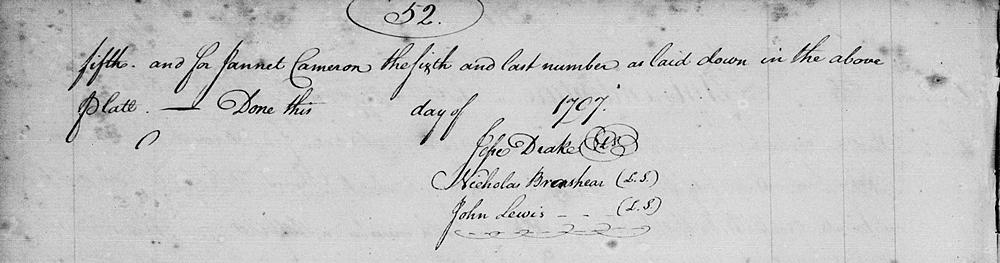 52.
fifth. and for Jannet Cameron the sixth and last number as laid down in the above
Platt. — Done this day of 1797.
Jesse Drake (L.S.)
Nicholas Brashear (L.S.)
John Lewis - - - (L.S.)